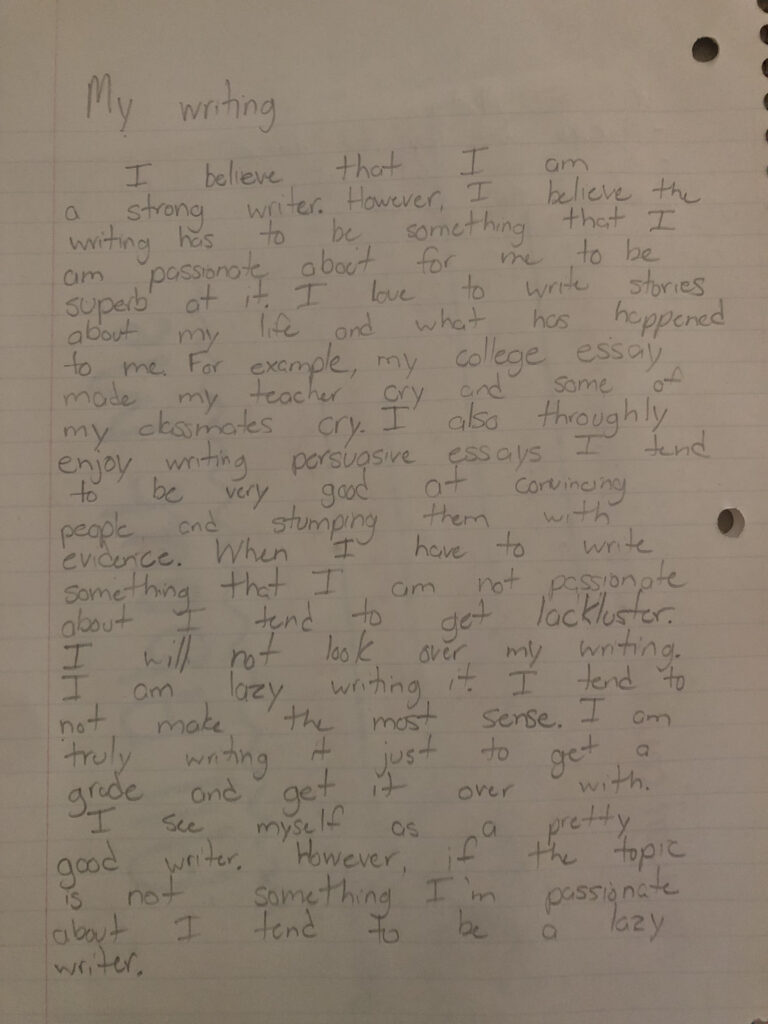 My writing
I believe that I am
a strong writer. However, I believe the
writing has to be something that I
am passionate about for me to be
superb at it. I love to write stories
about my life and what has happened
to me. For example, my college essay
made my teacher cry and some of
my classmates cry. I also throughly
enjoy writing persuasive essays I tend
to be very good at convincing
people and stumping them with
evidence. When I have to write
something that I am not passionate
about I tend to get lackluster.
I will not look over my writing.
I am lazy writing it. I tend to
not make the most sense. I am
truly writing it just to get a
grade and get it over with.
I see myself as a pretty
good writer. However, if the topic
is not something I'm passionate
about I tend to be a lazy
writer.